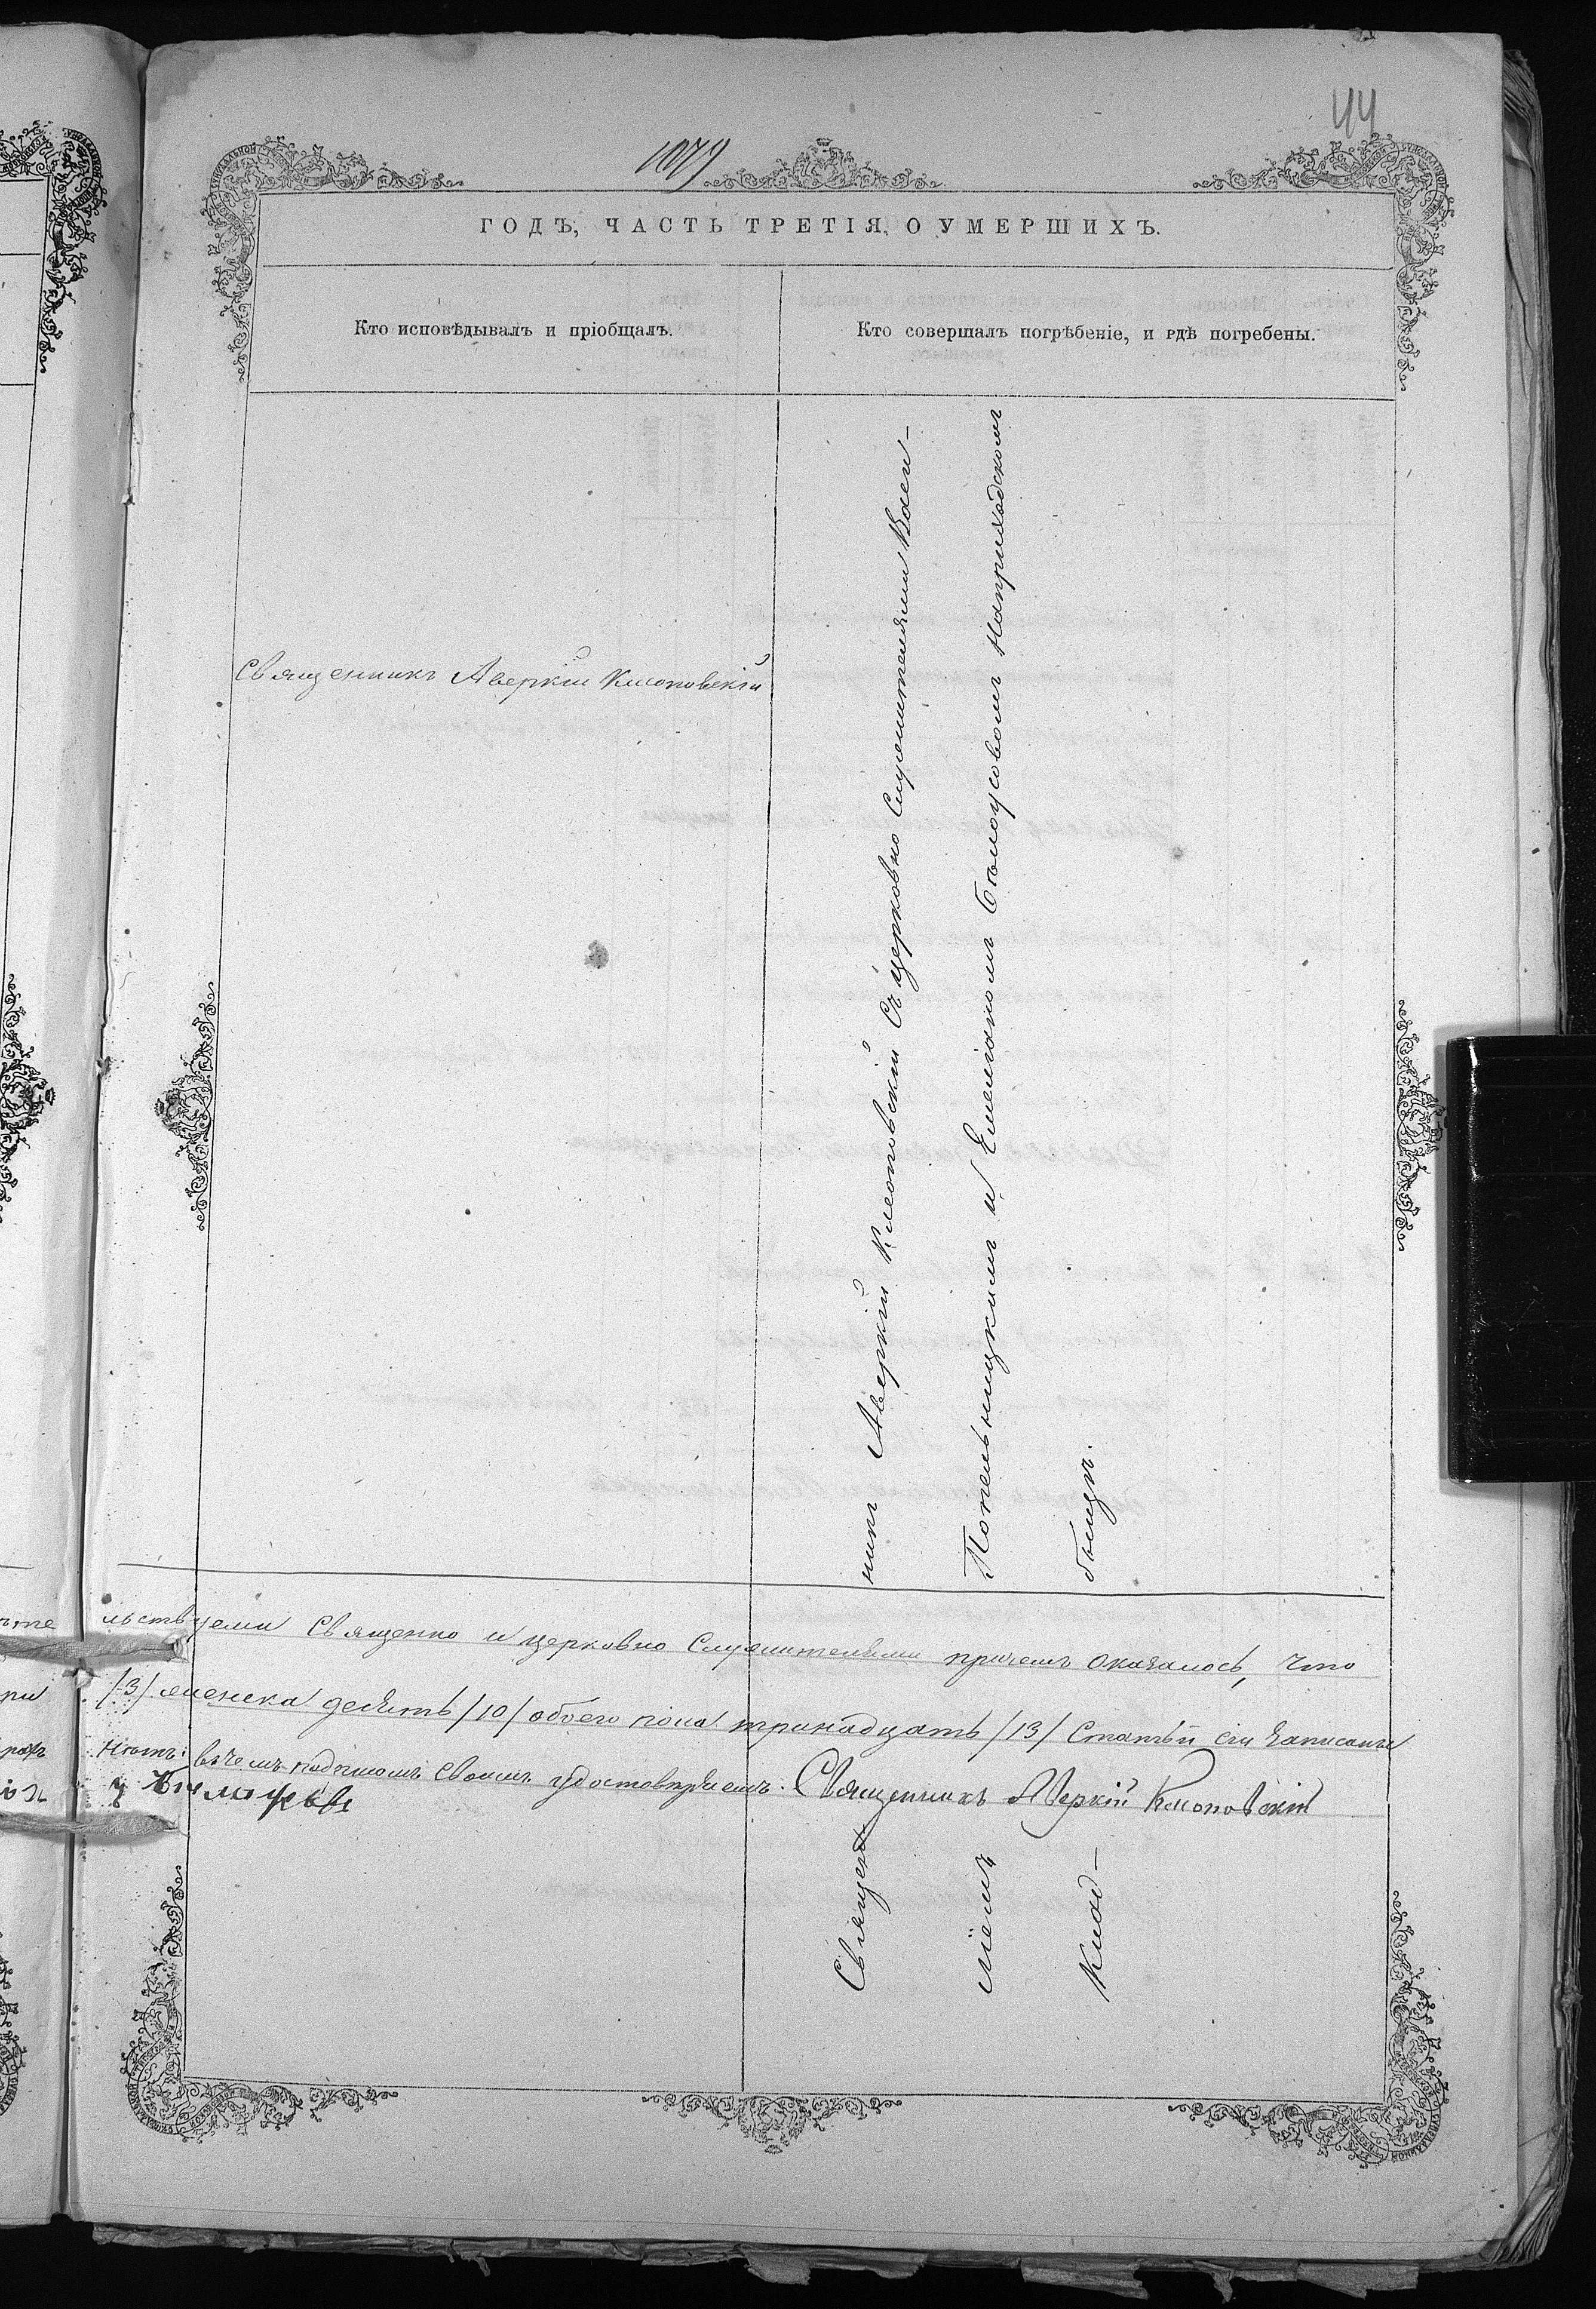 44
1079
ГОДЪ, ЧАСТЬ ТРЕТІЯ, О УМЕРШИХЪ.
Кто исповѣдывалъ и пріобщалъ.
Кто совершалъ погрѣбеніе, и гдѣ погребены.
Священникъ Аверкій Клоповскій
Священникъ Аверкій Клеоповскій съ церковно Служителями Васи-
ліемъ Потельницкимъ и Емеліаномъ Бѣлоусовомъ на приходскомъ
кладбищѣ.
льствуемъ Священно и церковно Служителями причемъ оказалось, что
/3/ женска десять /10/ обоего пола тринадцать /13/ Статьи сіи записаны
нѣтъ: въ чемъ подписомъ своимъ удостовѣряемъ. Священникъ Аверкій Клоповскій